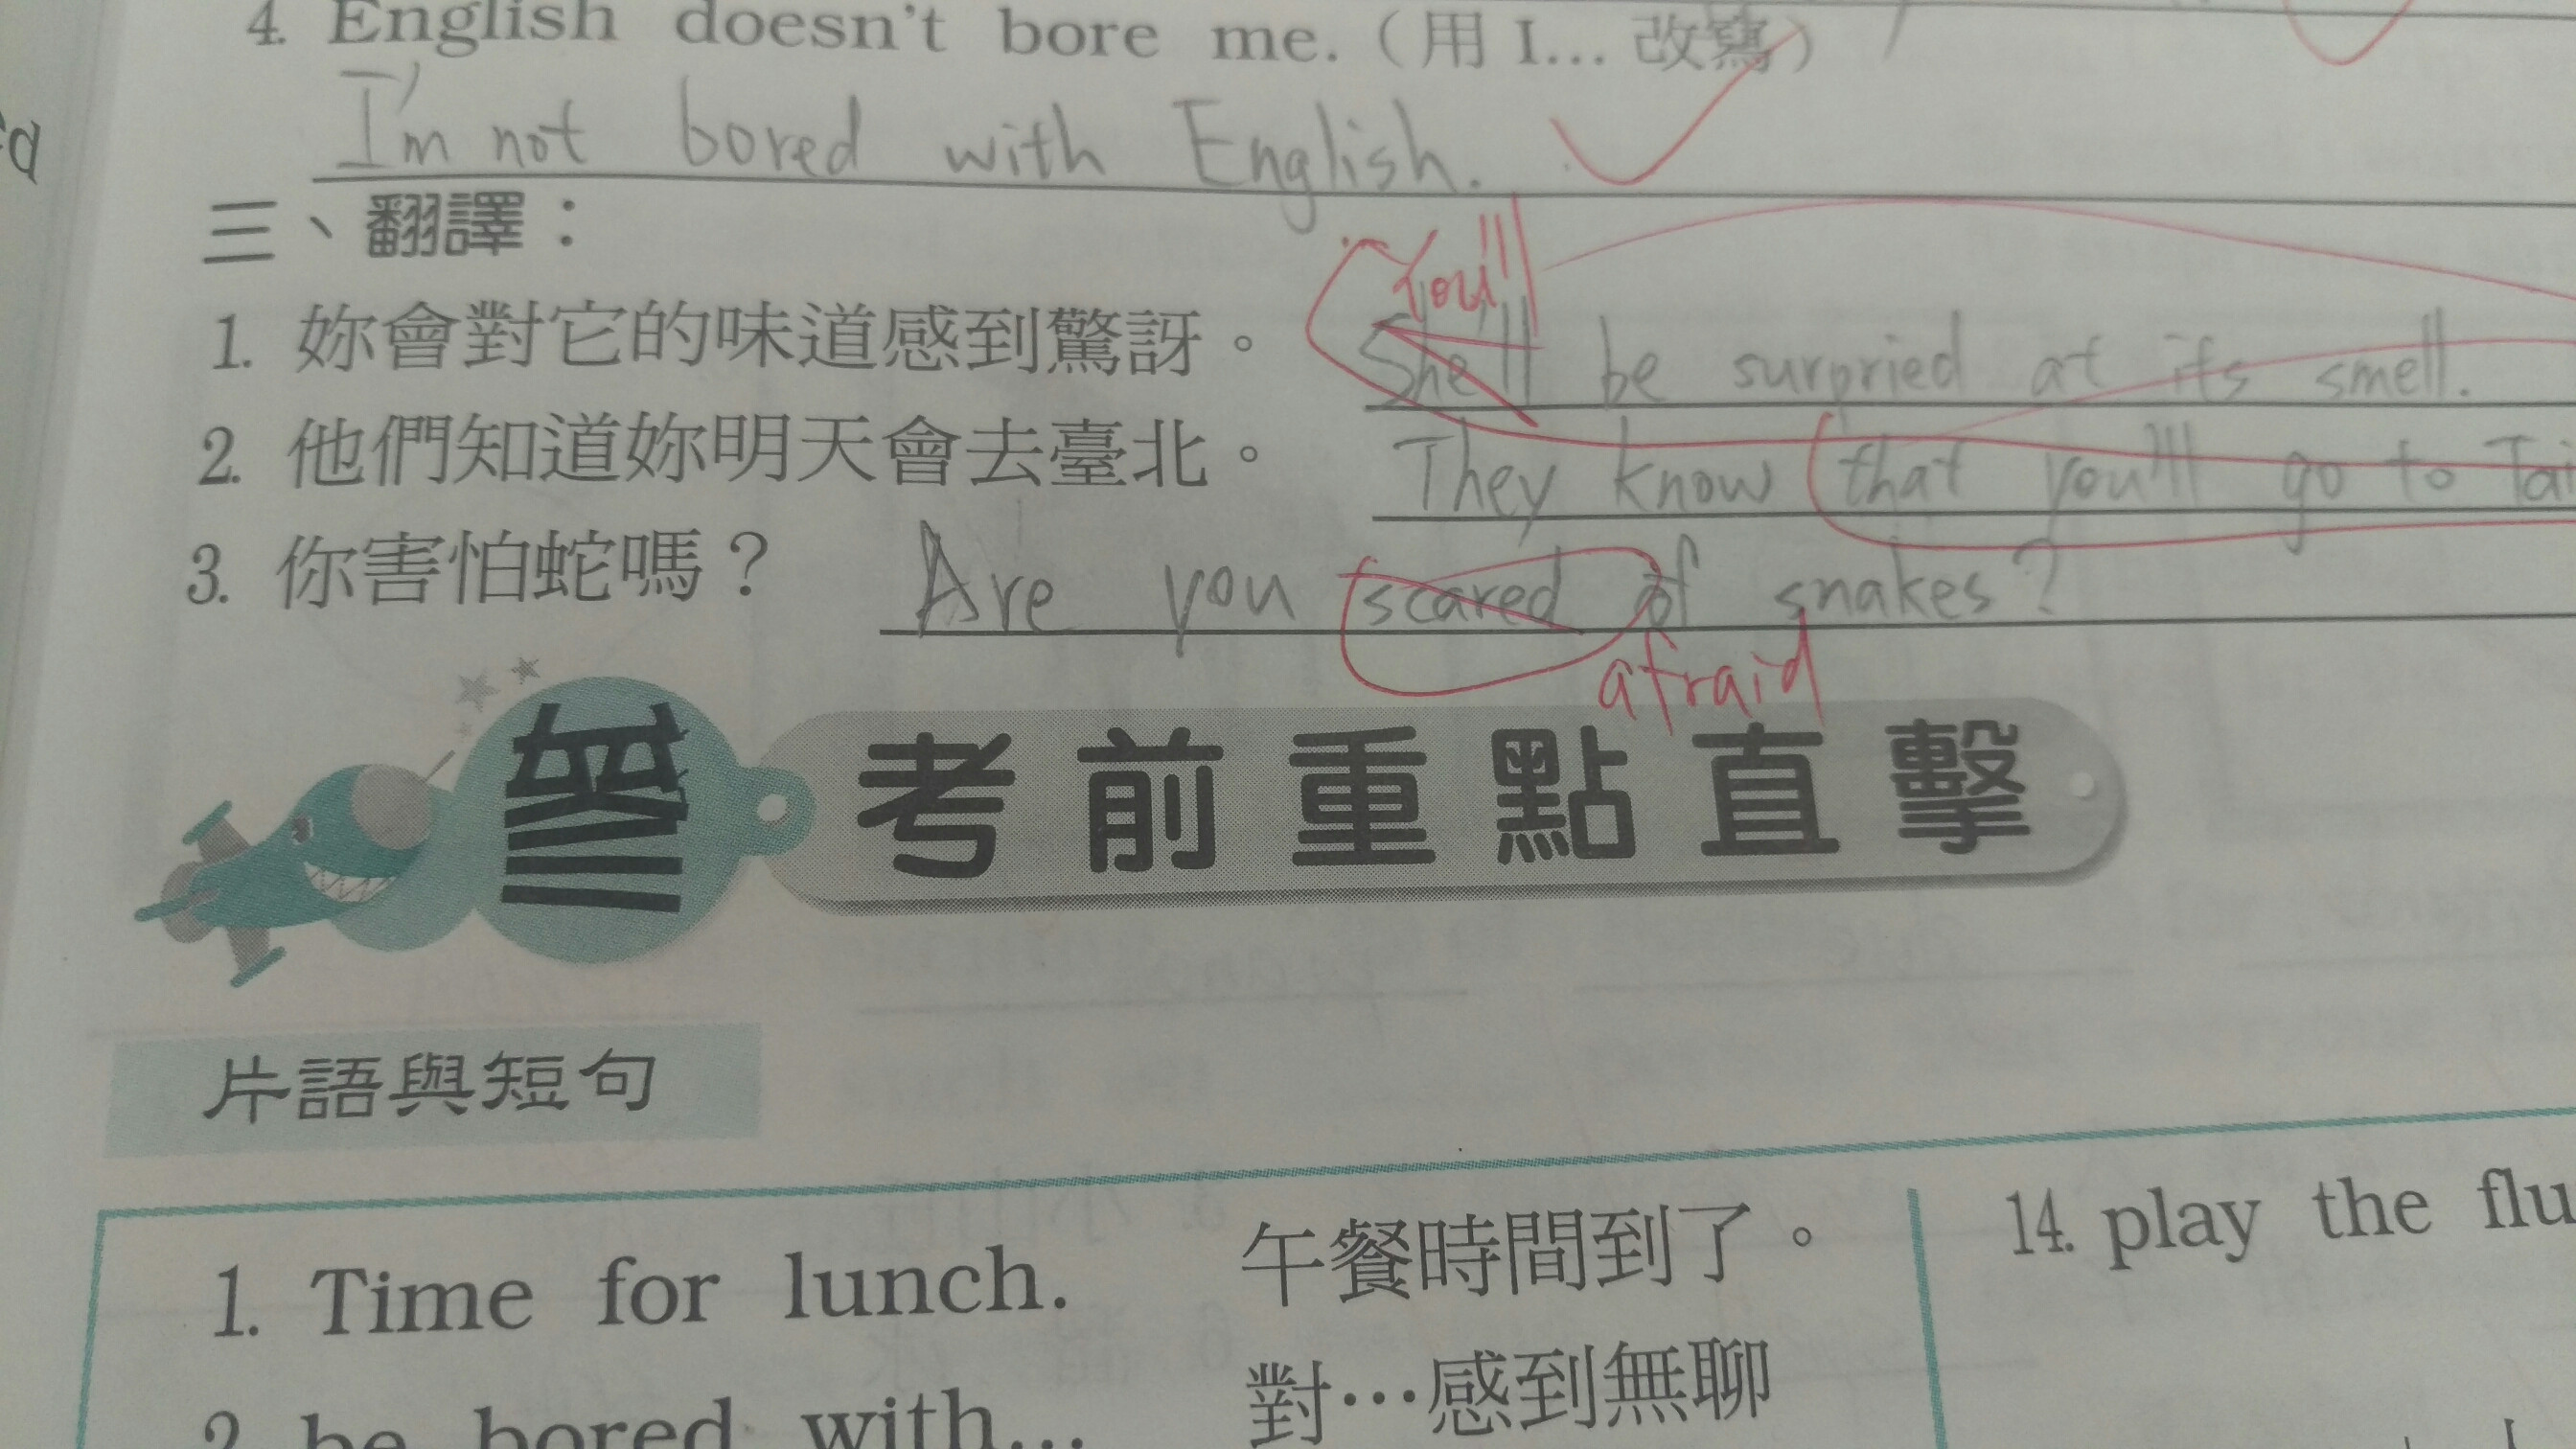 4. English doesn't bore me.(用 I… 改寫)
I'm not bored with English.
三、翻譯：
You'll
1. 妳會對它的味道感到驚訝。 She'll be surpried at its smell.
2. 他們知道妳明天會去臺北。 They know that you'll go to Tai
3. 你害怕蛇嗎？ Are you scared of snakes?
afraid
參 考前重點直擊
片語與短句
1. Time for lunch. 午餐時間到了。
2. be bored with... 對…感到無聊
14. play the flu